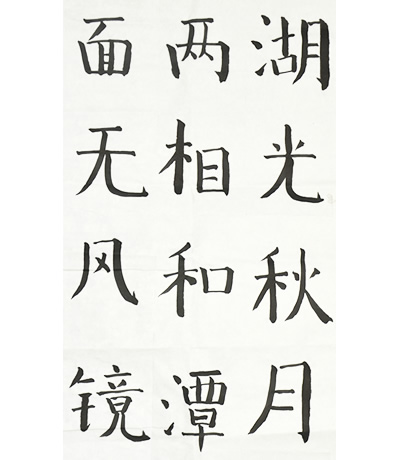 湖光秋月
两相和潭
面无风镜